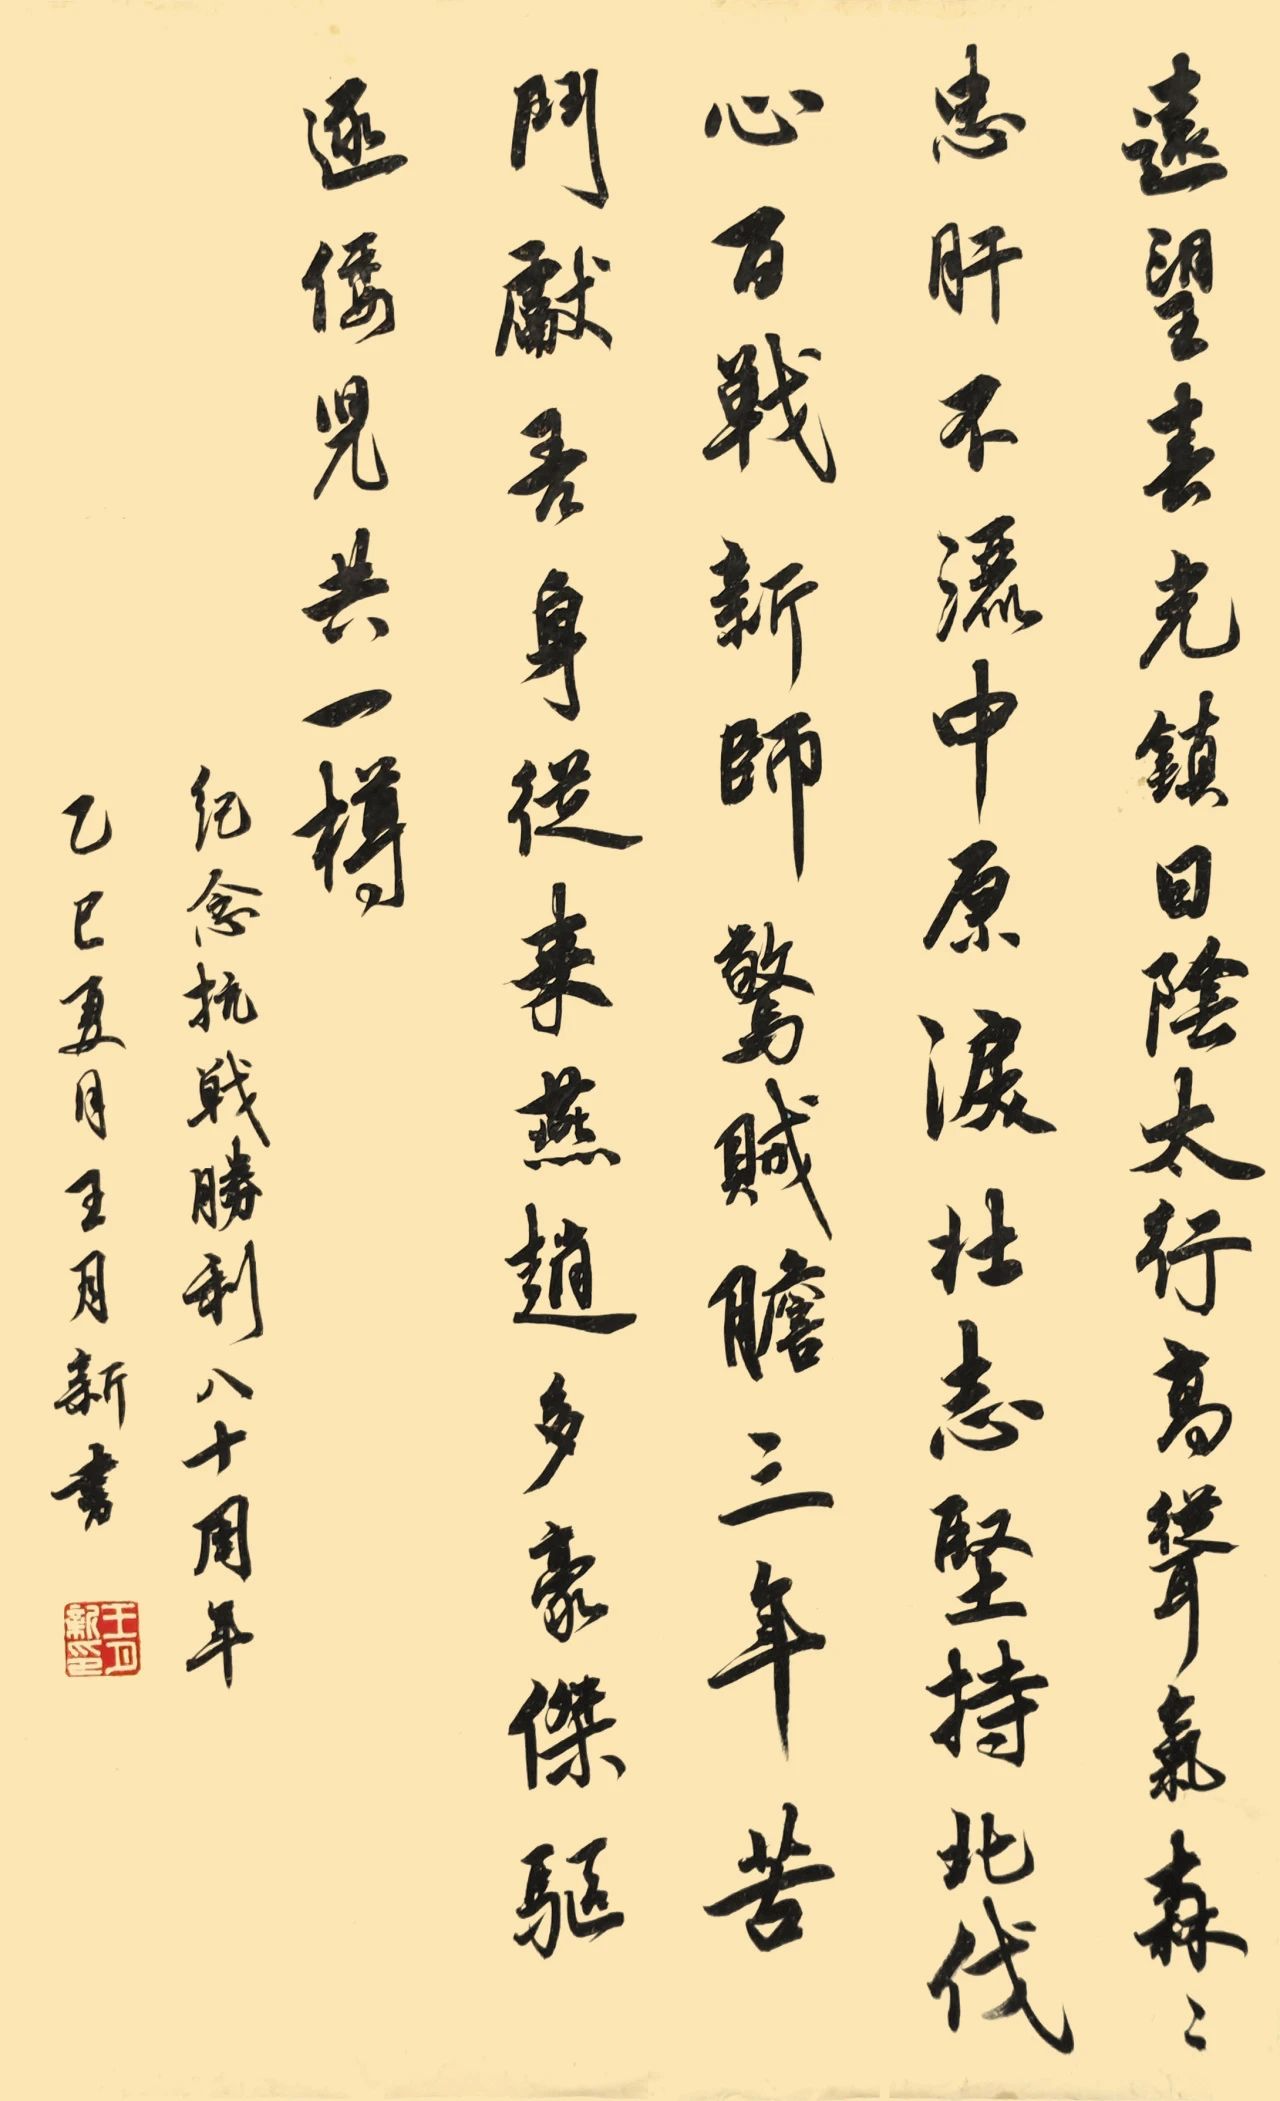 遠望春光鎮日陰太行高聳氣森〻
忠肝不灑中原淚壯志堅持北伐
心百戰新師驚賊膽三年苦
鬥獻吾身從来燕趙多豪傑驅
逐倭兒共一樽
紀念抗戰勝利八十周年
乙巳夏月王月新書
王月新印